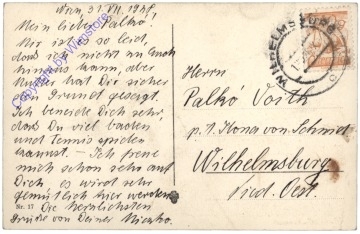 Wien, 31. VII. 19
Mein lieber Palkó!
Mir ist es so leid,
dass ich nicht zu Euch
kommen kann, aber
Mutter hat Dir sicher
den Grund gesagt.
Ich beneide Dich sehr,
dass Du viel baden
und Tennis spielen
kannst. – Ich freue
mich schon sehr auf
Dich, es wird sehr
gemütlich hier werden.
Die herzlichsten
Grüsse von Deiner
Nr. 17
WILHELMSBURG
Herrn
Palkó Voith
p. A. Ilona von Schmidt
Wilhelmsburg
Nied. Oest.